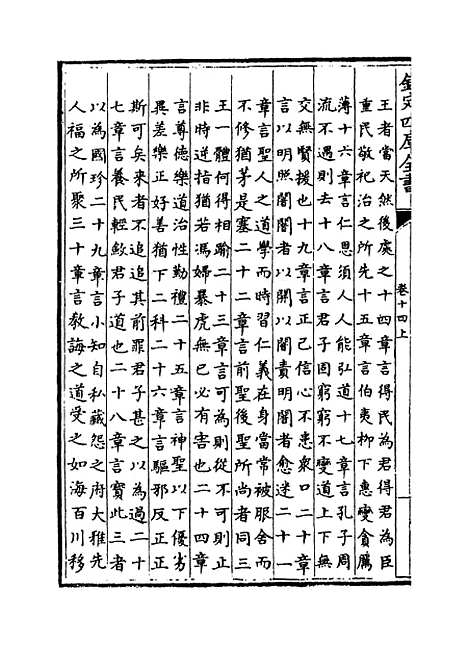 欽定四庫全書
卷十四上
王者當天然後處之十四章言得民為君得君為臣
重民敬祀治之所先十五章言伯夷柳下惠變貪厲
薄十六章言仁恩須人人能弘道十七章言孔子周
流不遇則去十八章言君子固窮窮不變道上下無
交無賢援也十九章言正己信心不患衆口二十章
言以明照闇闇者以開以闇責明闇者愈迷二十一
章言聖人之道學而時習仁義在身當常被服舍而
不修猶茅是塞二十二章言前聖後聖所尚者同三
王一體何得相踰二十三章言可為則從不可則正
非時逆指猶若馮婦暴虎無已必有害也二十四章
言尊德樂道治性勤禮二十五章言神聖以下優劣
異差樂正好善猶下二科二十六章言驅邪反正正
斯可矣來者不追追其前罪君子甚之以為過二十
七章言養民輕斂君子道也二十八章言寶此三者
以為國珍二十九章言小知自私藏怨之府大雅先
人福之所聚三十章言教誨之道受之如海百川移